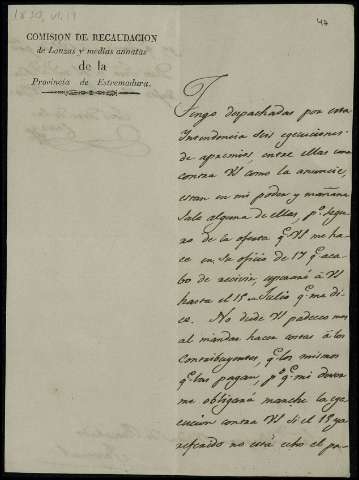 1830, VI, 19
47
COMISION DE RECAUDACION
de Lanzas y medias annatas
de la
Provincia de Estremadura.
Tengo despachadas por esta
Intendencia seis egecuciones
de apremios, entre ellas una
contra V como la anuncié,
estan en mi poder y mañana
sale alguna de ellas, p.º segu
ro de la oferta q.e V me ha
ce en su oficio de 17 q.e aca
bo de recivir, esperaré á V
hasta el 15 de Julio q.e me di
ce. No dude V padecemos
al mandar hacer costas á los
contribuyentes, q.e los mismos
q.e las pagan, p.º q.e mi dever
me obligará marche la ege
cucion contra V si el 15 ya
referido no está echo el pa-